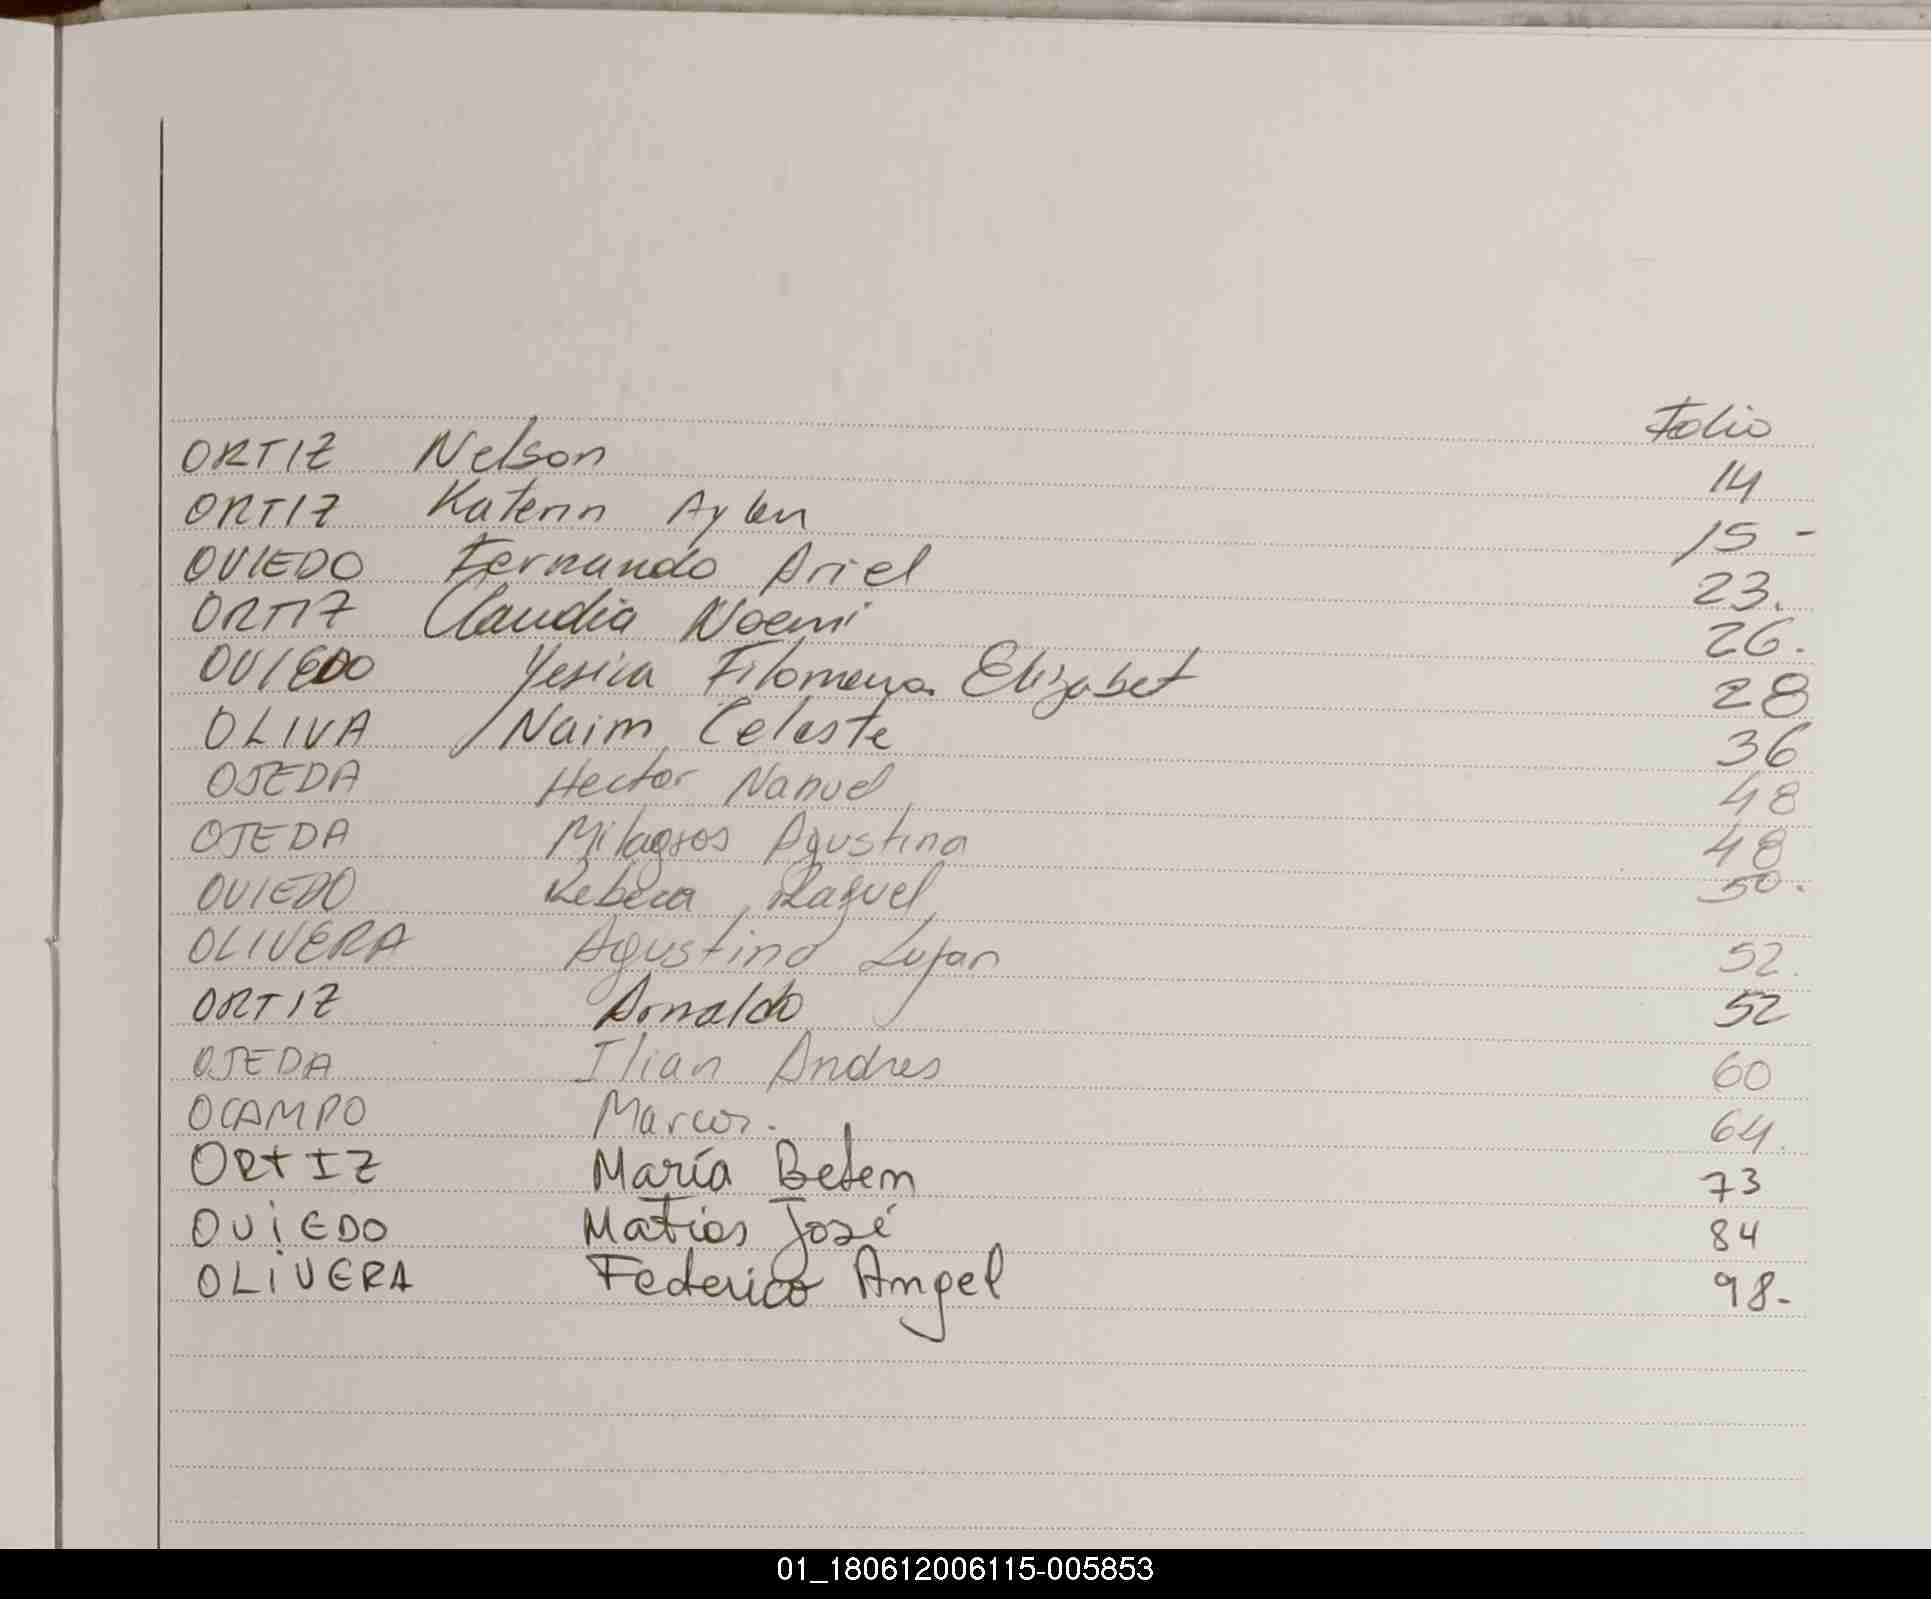 Folio
ORTIZ Nelson 14
ORTIZ Katerin Aylen 15 -
OVIEDO Fernando Ariel 23.
ORTIZ Claudia Noemi 26.
OVIEDO Yesica Filomena Elizabet 28
OLIVA Naim Celeste 36
OJEDA Hector Manuel 48
OJEDA Milagros Agustina 48
OVIEDO Rebeca Raquel 50.
OLIVERA Agustina Lujan 52.
ORTIZ Arnaldo 52
OJEDA Ilian Andres 60
OCAMPO Marcos. 64.
ORTIZ María Belem 73
OVIEDO Matias José 84
OLIVERA Federico Angel 98-
01_180612006115-005853